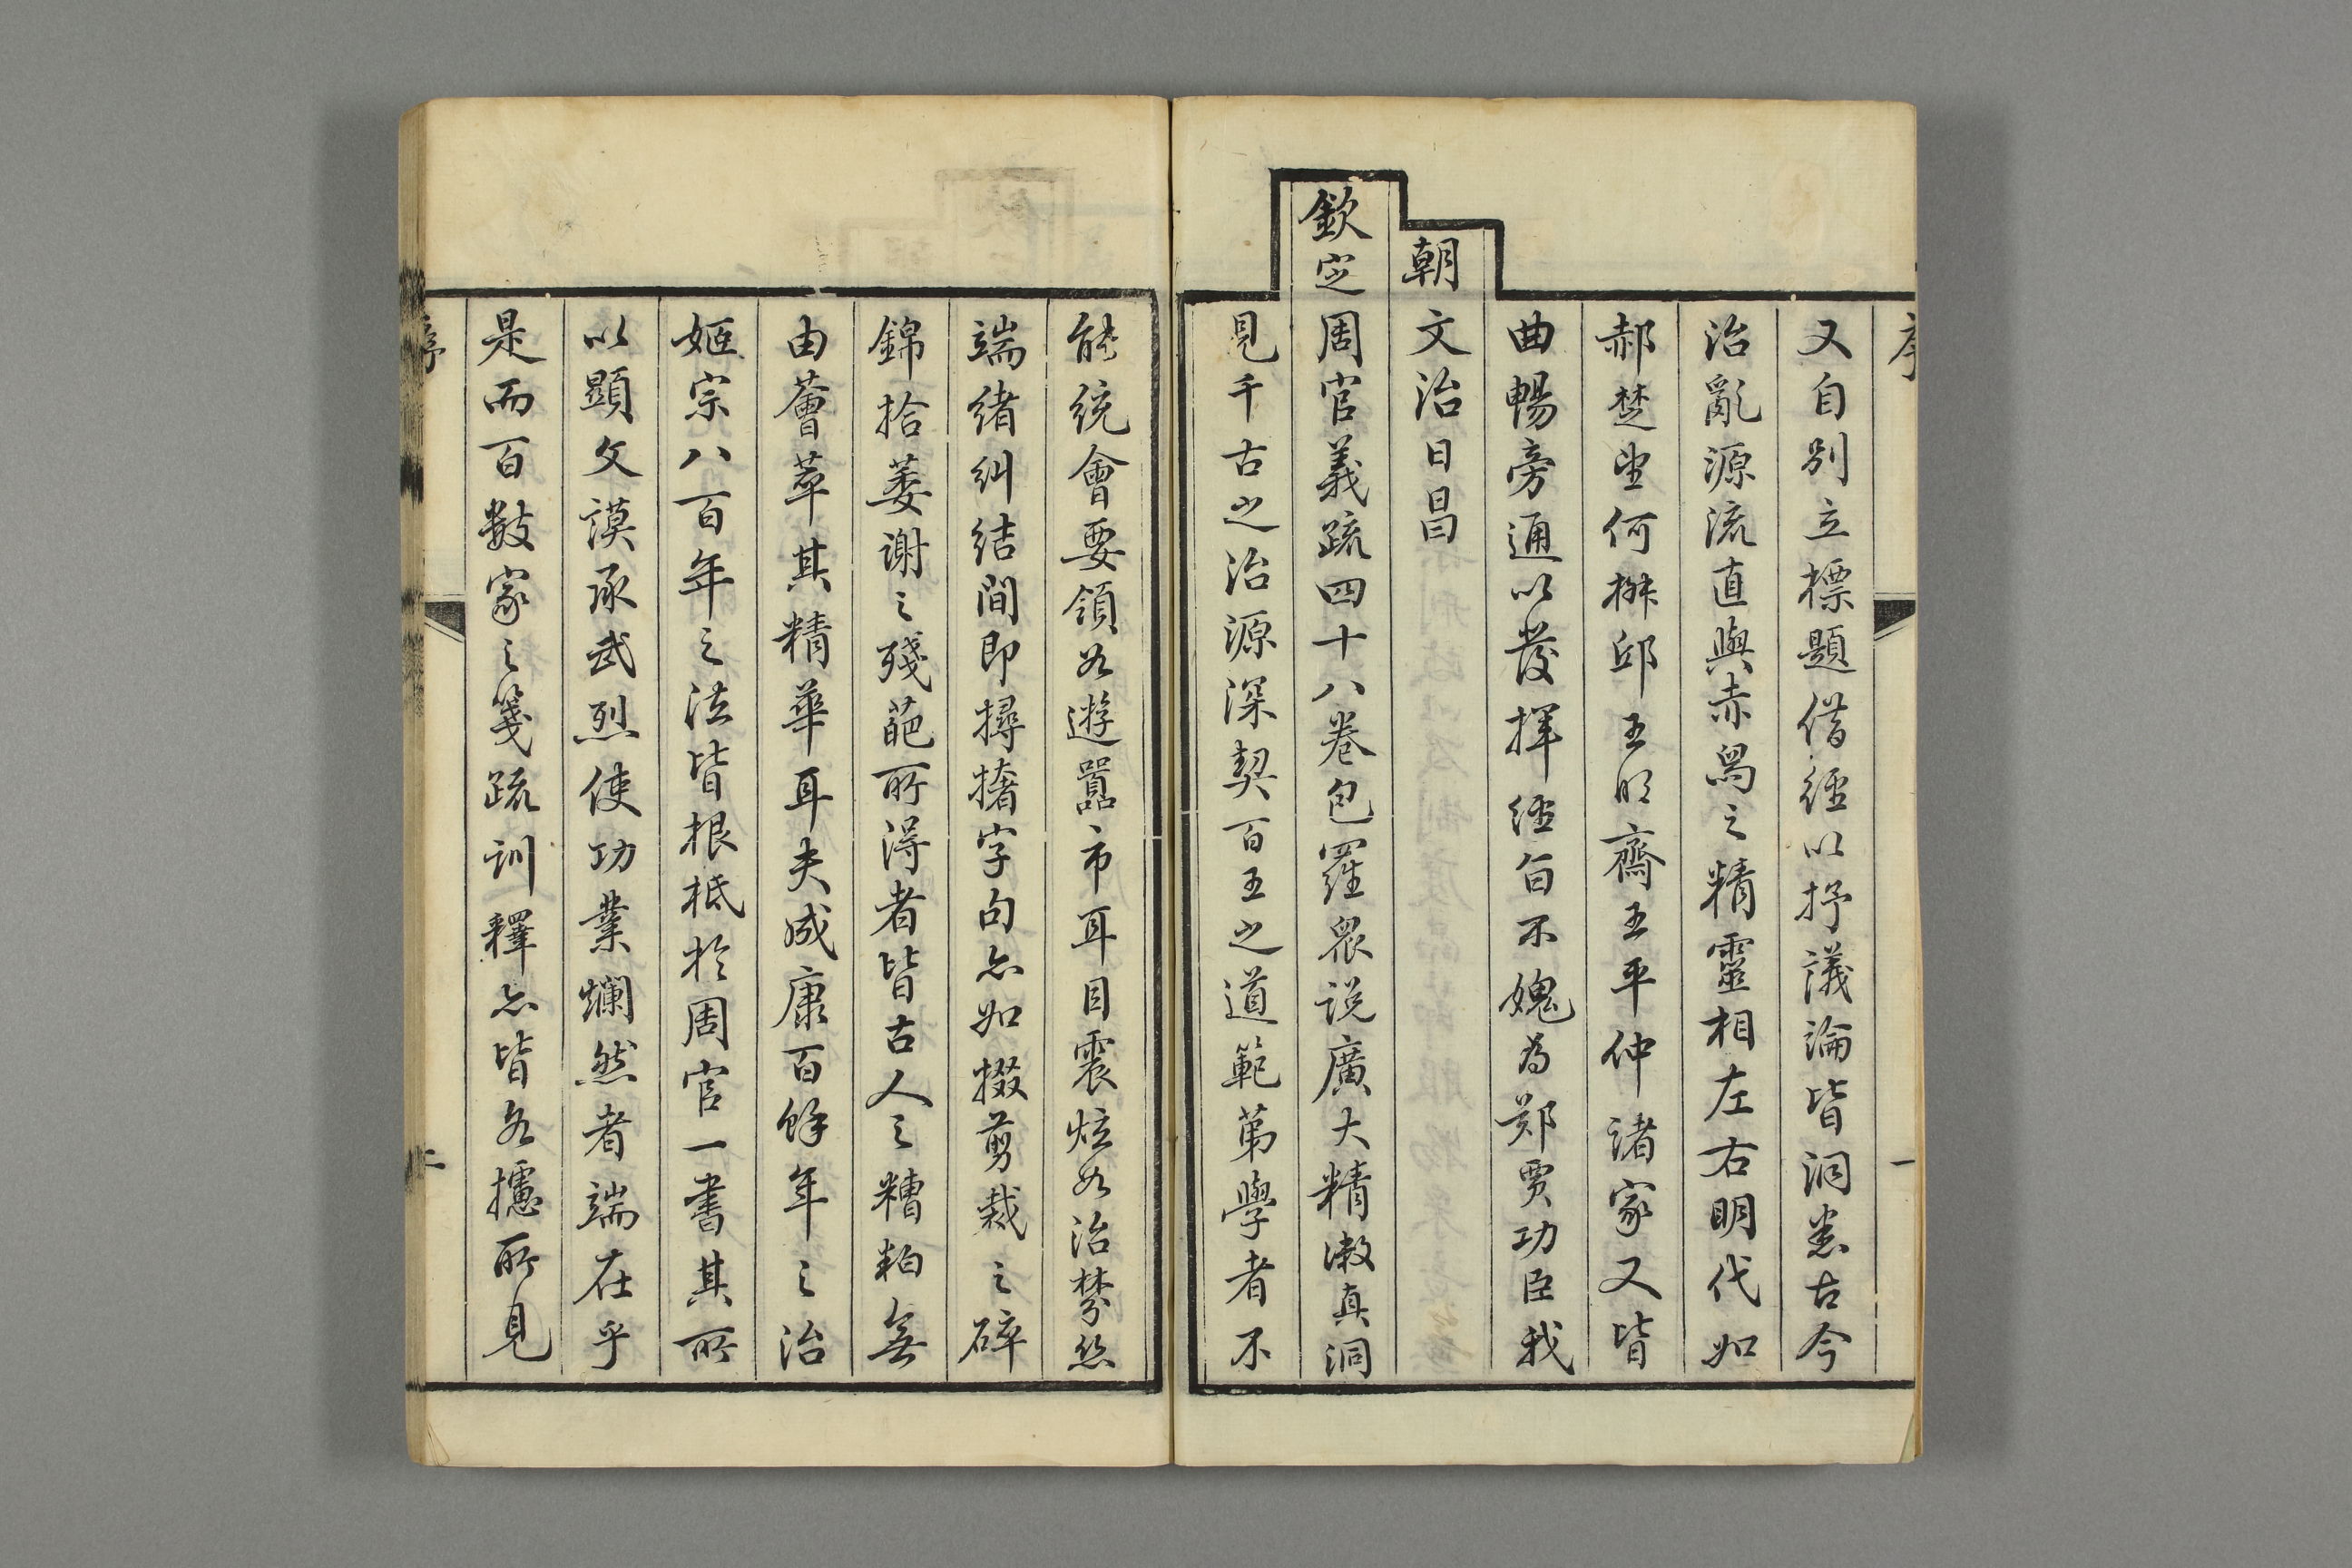 序
一
又自別立標題借經以抒議論皆洞悉古今
治亂源流直與赤舄之精靈相左右明代如
郝楚望何椒邱王明齋王平仲諸家又皆
曲暢旁通以發揮經旨不媿為鄭賈功臣我
朝文治日昌
欽定周官義疏四十八卷包羅眾說廣大精微真洞
見千古之治源深契百王之道範第學者不
能統會要領如遊囂市耳目震炫如治棼絲
端緒糾結間即撏撦字句亦如掇剪裁之碎
錦拾萎謝之殘葩所得者皆古人之糟粕無
由薈萃其精華耳夫成康百餘年之治
姬宗八百年之法皆根柢於周官一書其所
以顯文謨承武烈使功業爛然者端在乎
是而百數家之箋疏訓釋亦皆各攄所見
序
二